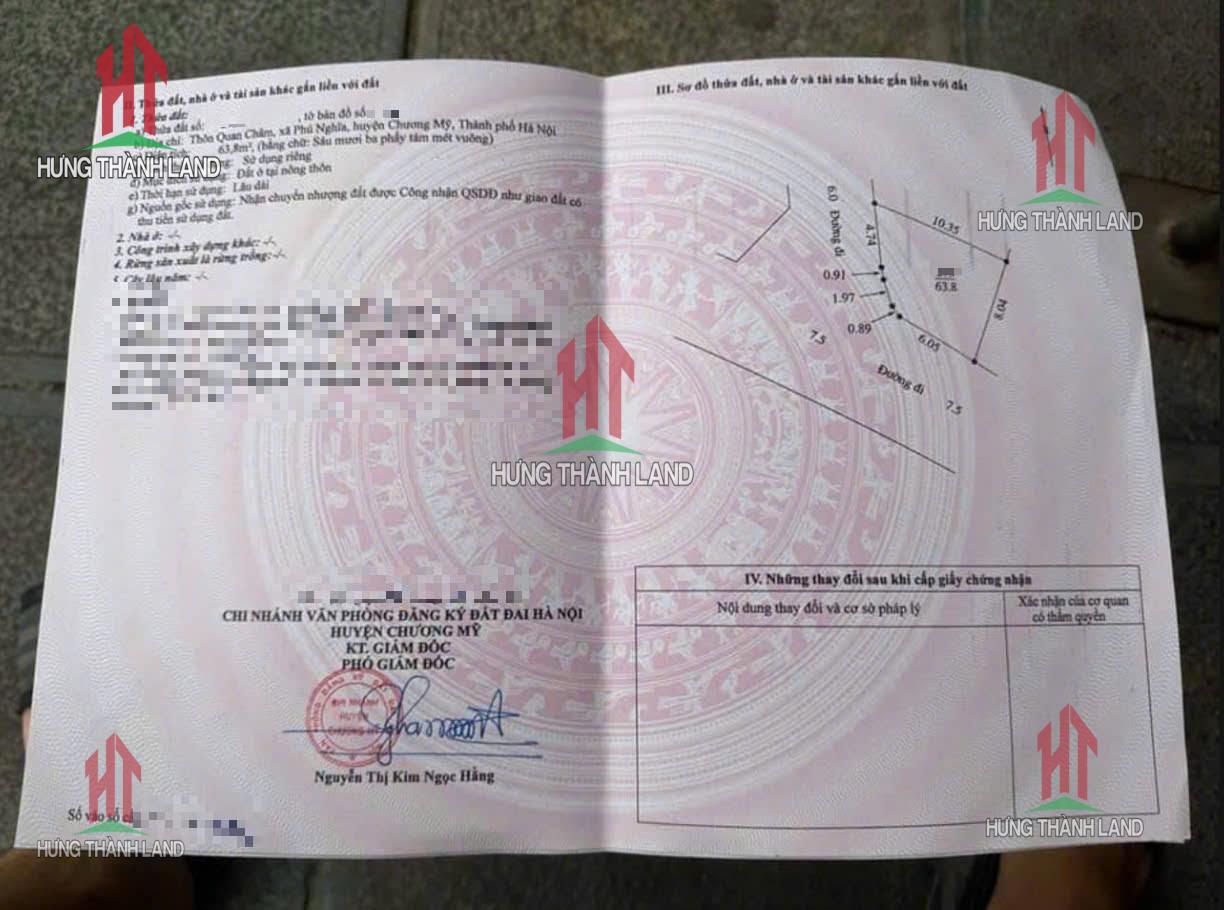 II. Thửa đất, nhà ở và tài sản khác gắn liền với đất
1. Thửa đất:
a) Thửa đất số: , tờ bản đồ số
b) Địa chỉ: Thôn Quan Châm, xã Phú Nghĩa, huyện Chương Mỹ, Thành phố Hà Nội
63,8m², (bằng chữ: Sáu mươi ba phẩy tám mét vuông)
Sử dụng riêng
Đất ở tại nông thôn
e) Thời hạn sử dụng: Lâu dài
g) Nguồn gốc sử dụng: Nhận chuyển nhượng đất được Công nhận QSDĐ như giao đất có
thu tiền sử dụng đất.
2. Nhà ở: -/-
3. Công trình xây dựng khác: -/-
4. Rừng sản xuất là rừng trồng: -/-
5. Cây lâu năm: -/-
CHI NHÁNH VĂN PHÒNG ĐĂNG KÝ ĐẤT ĐAI HÀ NỘI
HUYỆN CHƯƠNG MỸ
KT. GIÁM ĐỐC
PHÓ GIÁM ĐỐC
CHI NHÁNH
HUYỆN
CHƯƠNG MỸ
Nguyễn Thị Kim Ngọc Hằng
Số vào sổ
III. Sơ đồ thửa đất, nhà ở và tài sản khác gắn liền với đất
6.0 Đường đi
4.74
10.35
0.91
1.97
0.89
63.8
8.04
6.05
7.5
Đường đi
7.5
IV. Những thay đổi sau khi cấp giấy chứng nhận
Nội dung thay đổi và cơ sở pháp lý
Xác nhận của cơ quan
có thẩm quyền
HƯNG THÀNH LAND
HƯNG THÀNH LAND
HƯNG THÀNH LAND
HƯNG THÀNH LAND
HƯNG THÀNH LAND